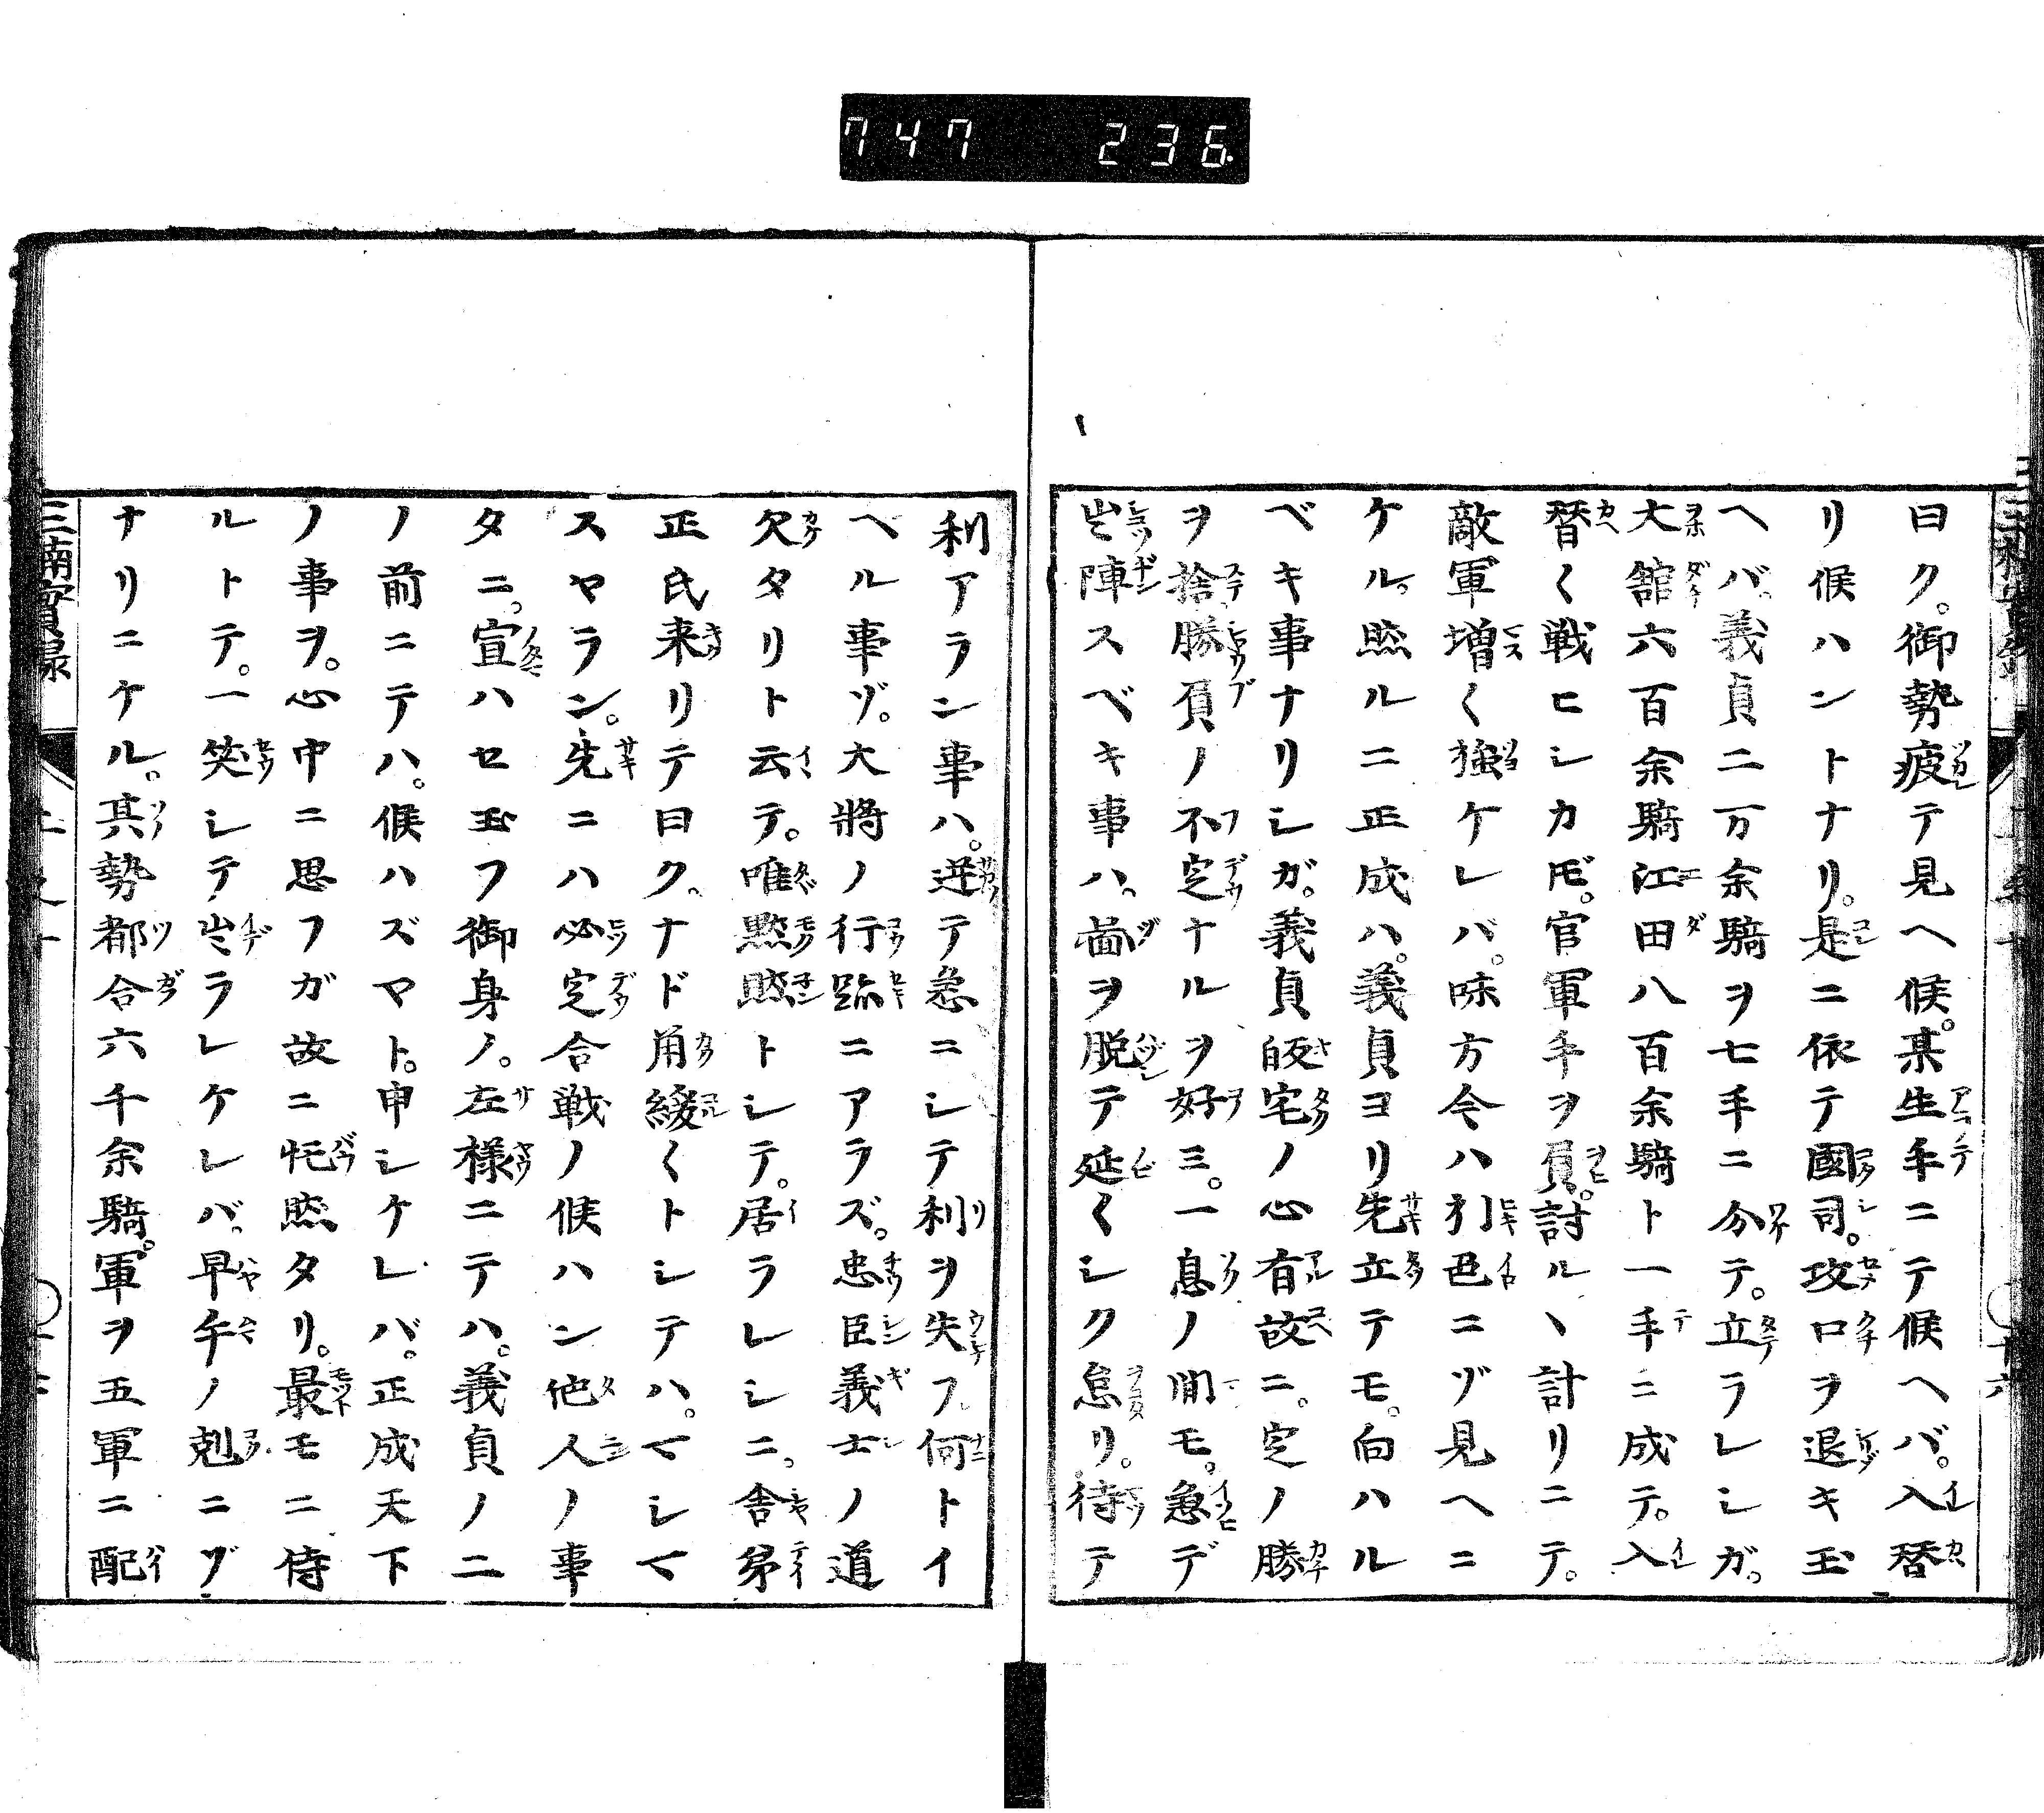 747 236
曰ク。御勢疲テ見ヘ候。某生年ニテ候ヘバ。入替
リ候ハントナリ。是ニ依テ國司。攻口ヲ退キ玉
ヘバ。義貞二万余騎ヲ七手ニ分テ。立ラレシガ。
大舘六百余騎江田八百余騎ト一手ニ成テ。入
替〱戦ヒシカ𪜈。官軍手ヲ負。討ルヽ計リニテ。
敵軍増〱強ケレバ。味方今ハ引色ニゾ見ヘニ
ケル。然ルニ正成ハ。義貞ヨリ先立テモ。向ハル
ベキ事ナリシガ。義貞皈宅ノ心有故ニ。定ノ勝
ヲ捨勝負ノ不定ナルヲ好ミ。一息ノ間モ。急デ
出陣スベキ事ハ。啚ヲ脱テ延〱シク怠リ。待テ
利アラン事ハ。逆テ急ニシテ利ヲ失フ何トイ
ヘル事ゾ。大將ノ行跡ニアラズ。忠臣義士ノ道
欠タリト云テ。唯黙然トシテ。居ラレシニ。舎弟
正氏来リテ曰ク。ナド角緩〱トシテハ。マシマ
スヤラン。先ニハ必定合戦ノ候ハン他人ノ事
タニ。宣ハセ玉フ御身ノ。左様ニテハ。義貞ノ二
ノ前ニテハ。候ハズマト。申シケレバ。正成天下
ノ事ヲ。心中ニ思フガ故ニ忙然タリ。最モニ侍
ルトテ。一笑シテ出ラレケレバ。早午ノ剋ニゾ
ナリニケル。其勢都合六千余騎。軍ヲ五軍ニ配
三楠實録